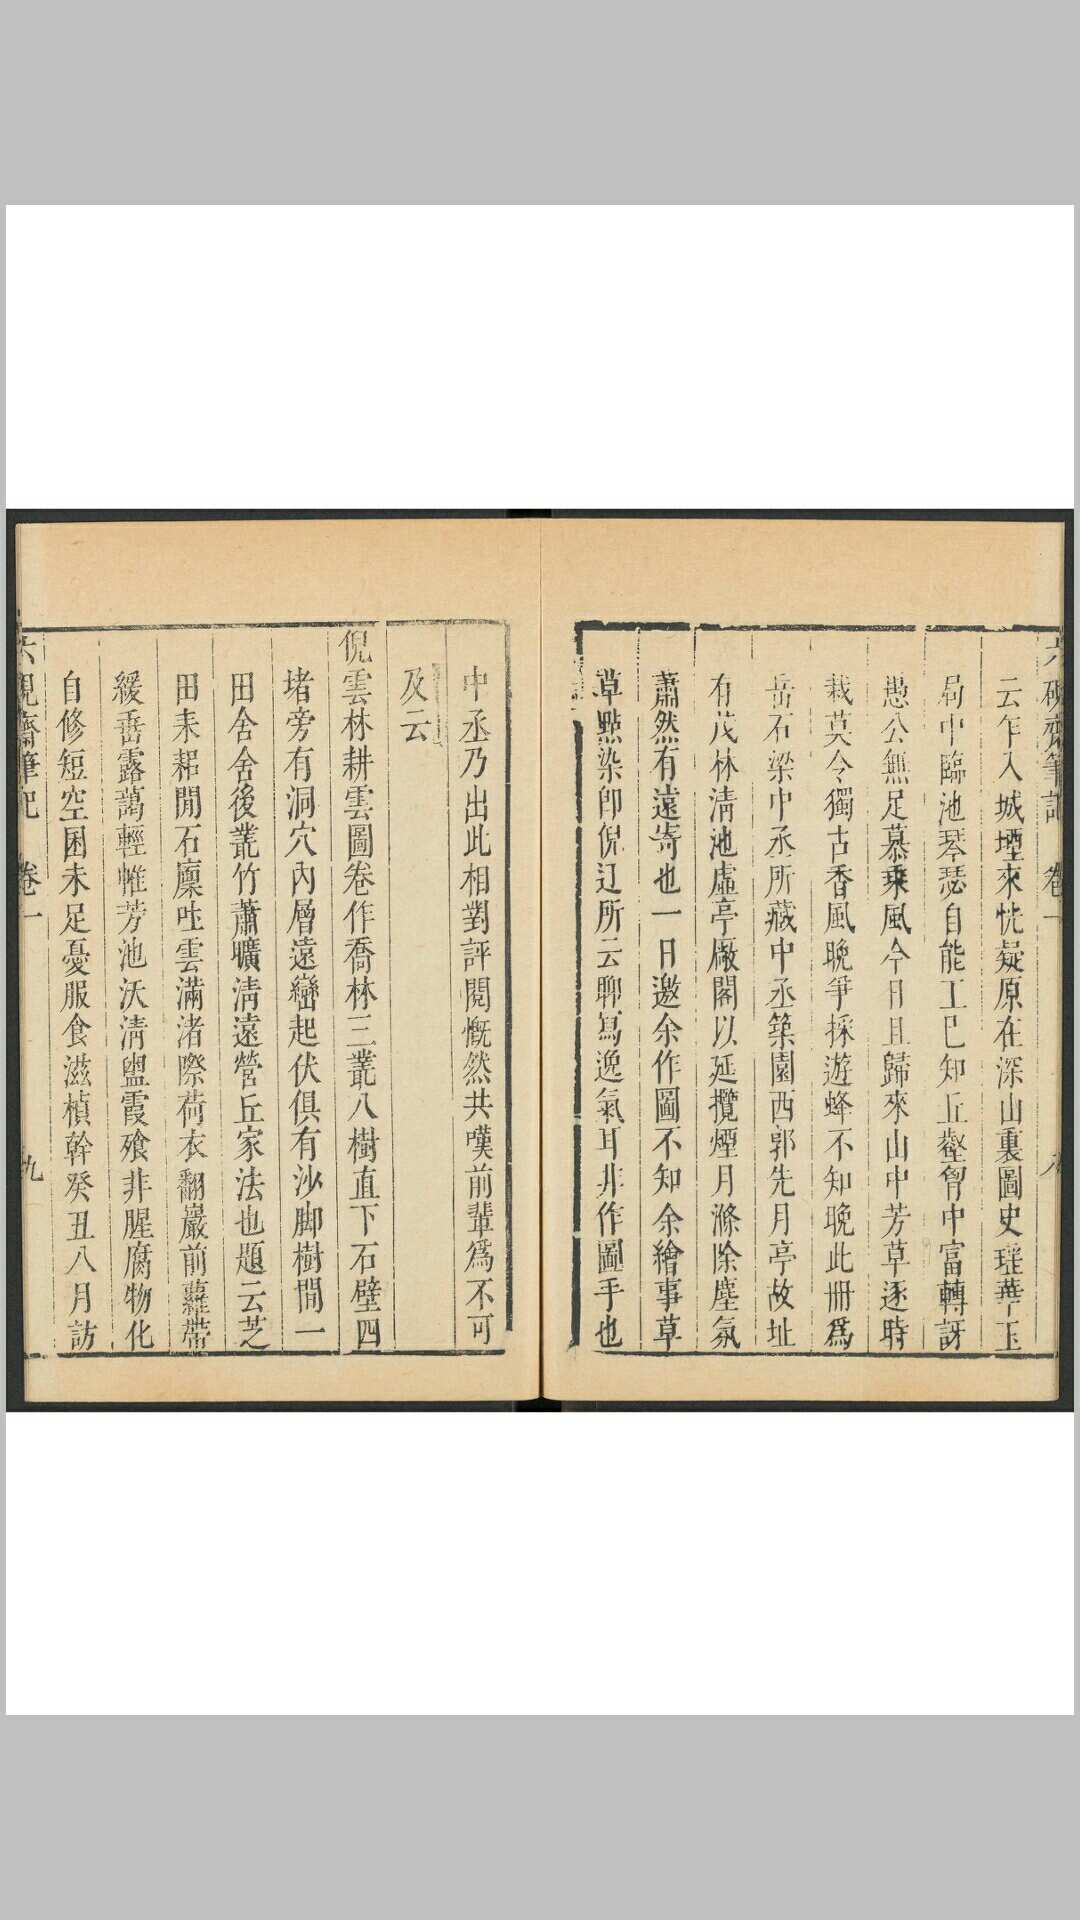 六硯齋筆記 卷一 八
云乍入城堙來恍疑原在深山裏圖史瑶華玉
局中臨池琴瑟自能工已知丘壑胷中富轉訝
愚公無足慕乗風今日且歸來山中芳草逐時
栽莫令獨古香風晚爭採遊蜂不知晚此冊爲
岳石梁中丞所藏中丞築園西郭先月亭故址
有茂林淸池虛亭厰閣以延攬煙月滌除塵氛
蕭然有遠寄也一日邀余作圖不知余繪事草
草㸃染卽倪迂所云聊寫逸氣耳非作圖手也
中丞乃出此相對評閱慨然共嘆前輩爲不可
及云
倪雲林耕雲圖卷作喬林三叢八樹直下石壁四
堵旁有洞穴內層遠巒起伏俱有沙脚樹間一
田舍舍後叢竹蕭曠淸遠營丘家法也題云芝
田耒耜閒石廩吐雲滿渚際荷衣翻巖前蘿帶
緩垂露藹輕帷芳池沃淸盥霞飱非腥腐物化
自修短空囷未足憂服食滋楨幹癸丑八月訪
六硯齋筆記 卷一 九